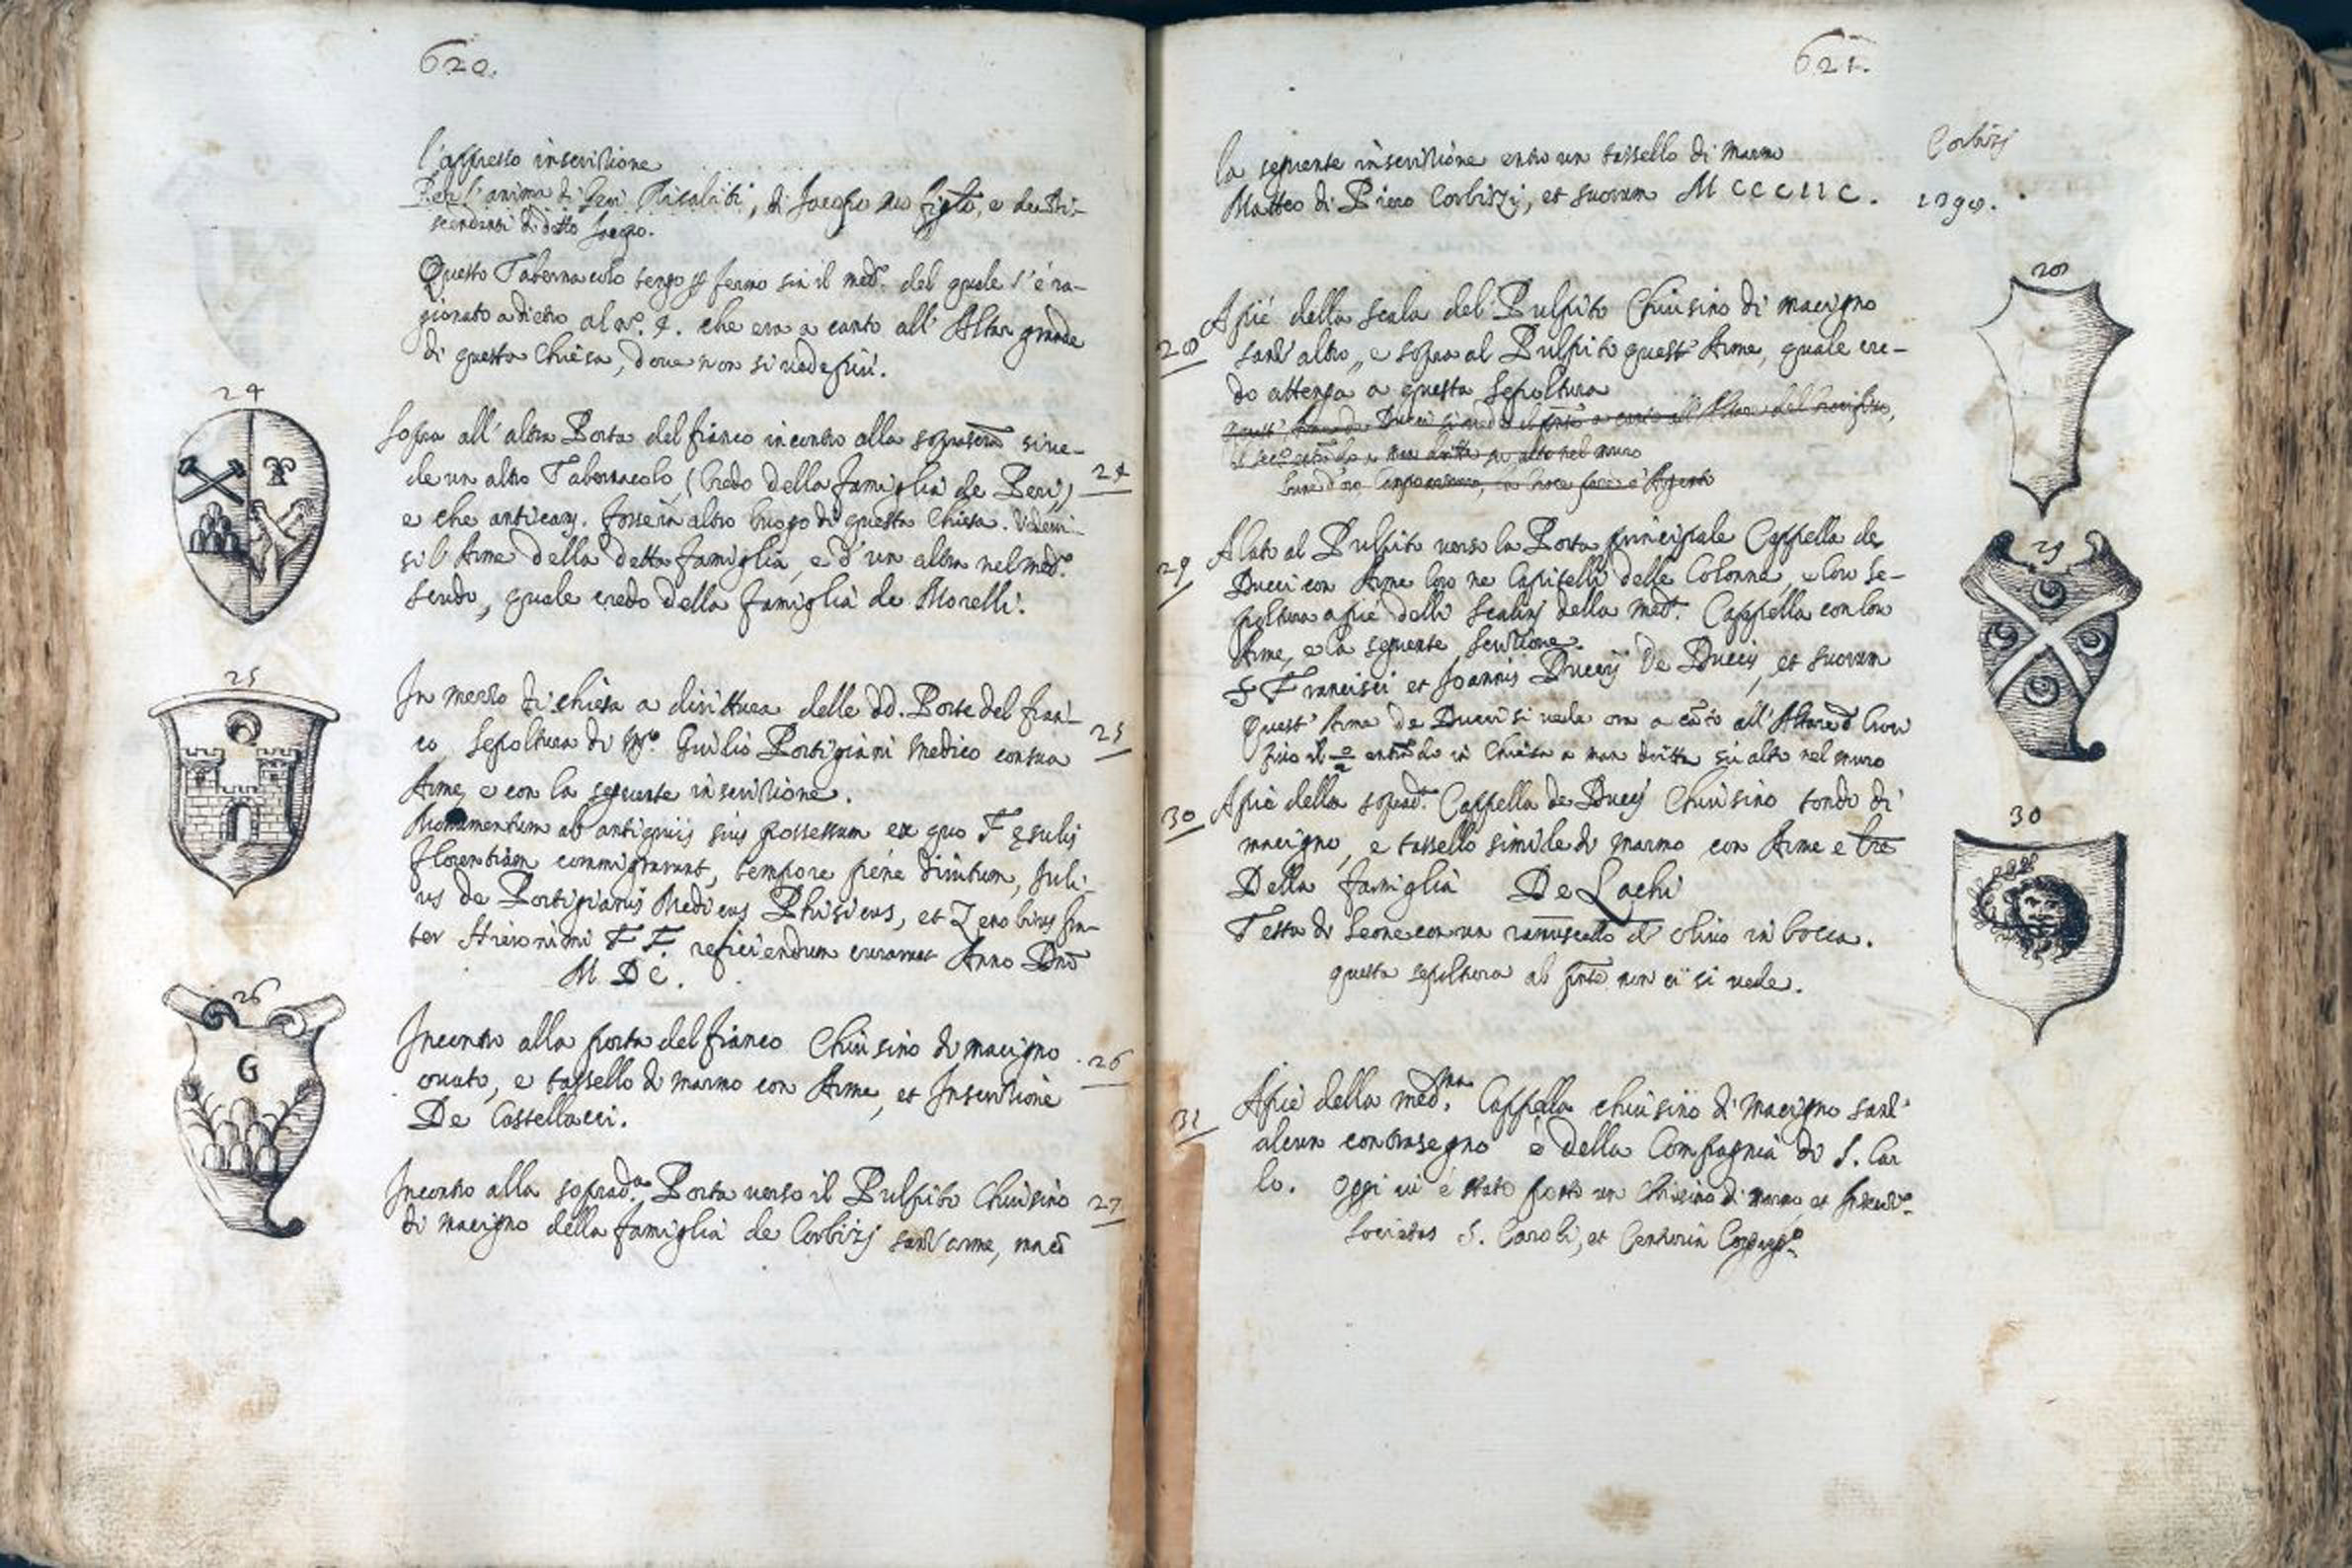 620.
l'appresso inscrittione
Per l'anima di Geri Risaliti, di Jacopo suo figlo, e de sti-
scendenti di detto Jacopo.
Questo Tabernacolo tengo p fermo sia il med.º del quale s'è ra-
gionato adietro al nº. 4. che era a canto all' Altar grande
di questa Chiesa, dove non si vede più.
24
Sopra all' altra Porta del fianco incontro alla sopra si ve-
de un altro Tabernacolo, (Credo della famiglia de Beri)
24
e che anticam. fosse in altro luogo di questa Chiesa.
si l'Arme della detta famiglia, e d'un altra nel med.º
scudo, quale credo della famiglia de Morelli.
25
In mezzo di chiesa a dirittura delle dd. Porte del fian-
co sepoltura di Mº Giulio Portigiani Medico con sua
25
Arme, e con la seguente inscrittione.
Monumentum ab antiquis sius possessum ex quo Fęsulis
Florentiam commigrarunt, tempore pene dirutum, Juli-
us de Portigianis Medicus Phisicus, et Zenobius fra-
ter Hieronimi F F. reficiendum curarunt Anno Dnī
M. D C.
26
G
Incontro alla porta del fianco Chiusino di macigno
26
ovato, e tassello di marmo con Arme, et Inscrittione
De Castellacci.
Incontro alla soprad.ª Porta verso il Pulpito Chiusino
27
di macigno della famiglia de Corbizj senz'arme, mā cō
621.
la seguente inscrittione entro un tassello di Marmo
Corbizj
Matteo di Piero Corbizzi, et suorum M C C C I I C.
1398.
28
Apié della scala del Pulpito Chiusino di macigno
28
senz' altro, e sopra al Pulpito quest' Arme, quale cre-
do attenga a questa sepoltura
29
Alato al Pulpito verso la Porta principale Cappella de
29
Ducci con Arme loro ne Capitelli delle Colonne, e loro se-
poltura apié delli scalinj della med.ª Cappella con loro
Arme, e la seguente scrittione.
F Francisci et Joannis Duccij De Duccis, et suorum
Quest' Arma de Ducci si vede ora a cāto all' Altare d Croci
entrādo in Chiesa a man dritta sù alto nel muro
30
Apié della soprad.ª Cappella de Duccj Chiusino tondo di
30
macigno, e tassello simile di marmo con Arme e
Della famiglia De Lachi
Testa di Leone con un ramuscello d' olivo in bocca.
questa sepoltura al pñte non ci si vede.
31
Apié della med.ma Cappella chiusino di macigno senz'
alcun contrasegno è della Compagnia di S. Car
lo. Oggi vi è stato posto un Chiusino di marmo et
Societas S. Caroli, et Centuria